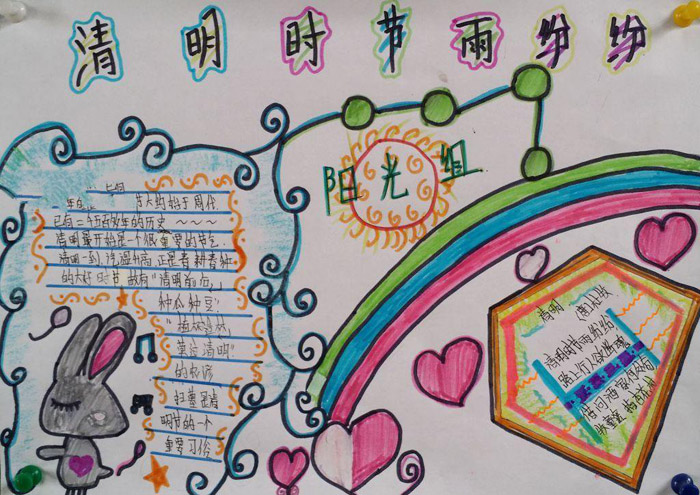 清明时节雨纷纷
阳光组
节大约始于周代
已有二千五百多年的历史
清明最开始是一个很重要的节气
清明一到,气温升高,正是春耕春种
的大好时节,故有"清明前后,
种瓜种豆"
"植树造林,
莫过清明"
的农谚
扫墓是清
明节的一个
重要习俗
清明
清明时节雨纷纷
路上行人欲断魂
借问酒家何处有
牧童遥指杏花村